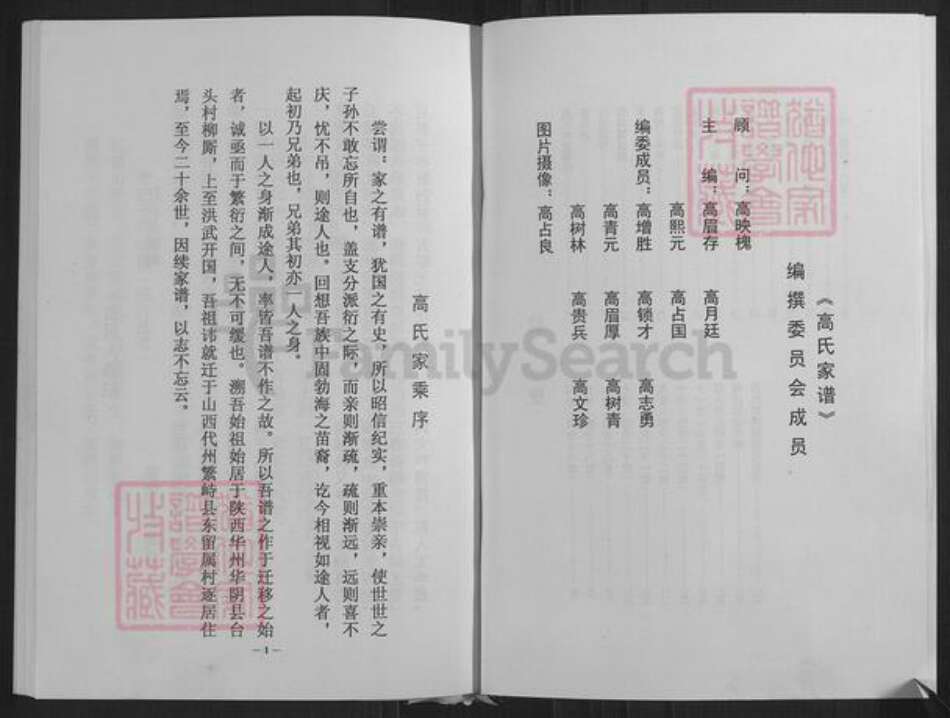 《高氏家谱》
编撰委员会成员
顾 问：高映槐
主 编：高眉存 高月廷
高熙元 高占国
编委成员：高增胜 高锁才 高志勇
高青元 高眉厚 高树青
高树林 高贵兵 高文珍
图片摄像：高占良
高氏家乘序
尝谓：家之有谱，犹国之有史，所以昭信纪实，重本崇亲，使世世之
子孙不敢忘所自也，盖支分派衍之际，而亲则渐疏，疏则渐远，远则喜不
庆，忧不吊，则途人也。回想吾族中固勃海之苗裔，讫今相视如途人者，
起初乃兄弟也，兄弟其初亦一人之身。
以一人之身渐成途人，率皆吾谱不作之故。所以吾谱之作于迁移之始
者，诚亟而于繁衍之间，无不可缓也。溯吾始祖始居于陕西华州华阴县台
头村柳厮，上至洪武开国，吾祖讳就迁于山西代州繁峙县东留属村逐居住
焉，至今二十余世，因续家谱，以志不忘云。
—1—
FamilySearch
谱学会
收藏